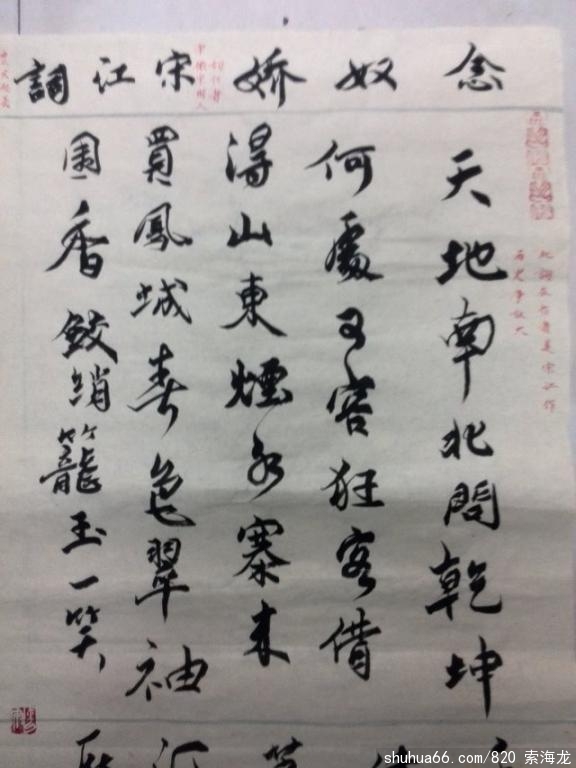 念奴嬌 宋江詞
天地南北問乾坤
何處可容狂客借
得山東煙水寨来
買鳳城春色翠袖
圍香鮫綃籠玉一笑
shuhua66.com/820 索海龙